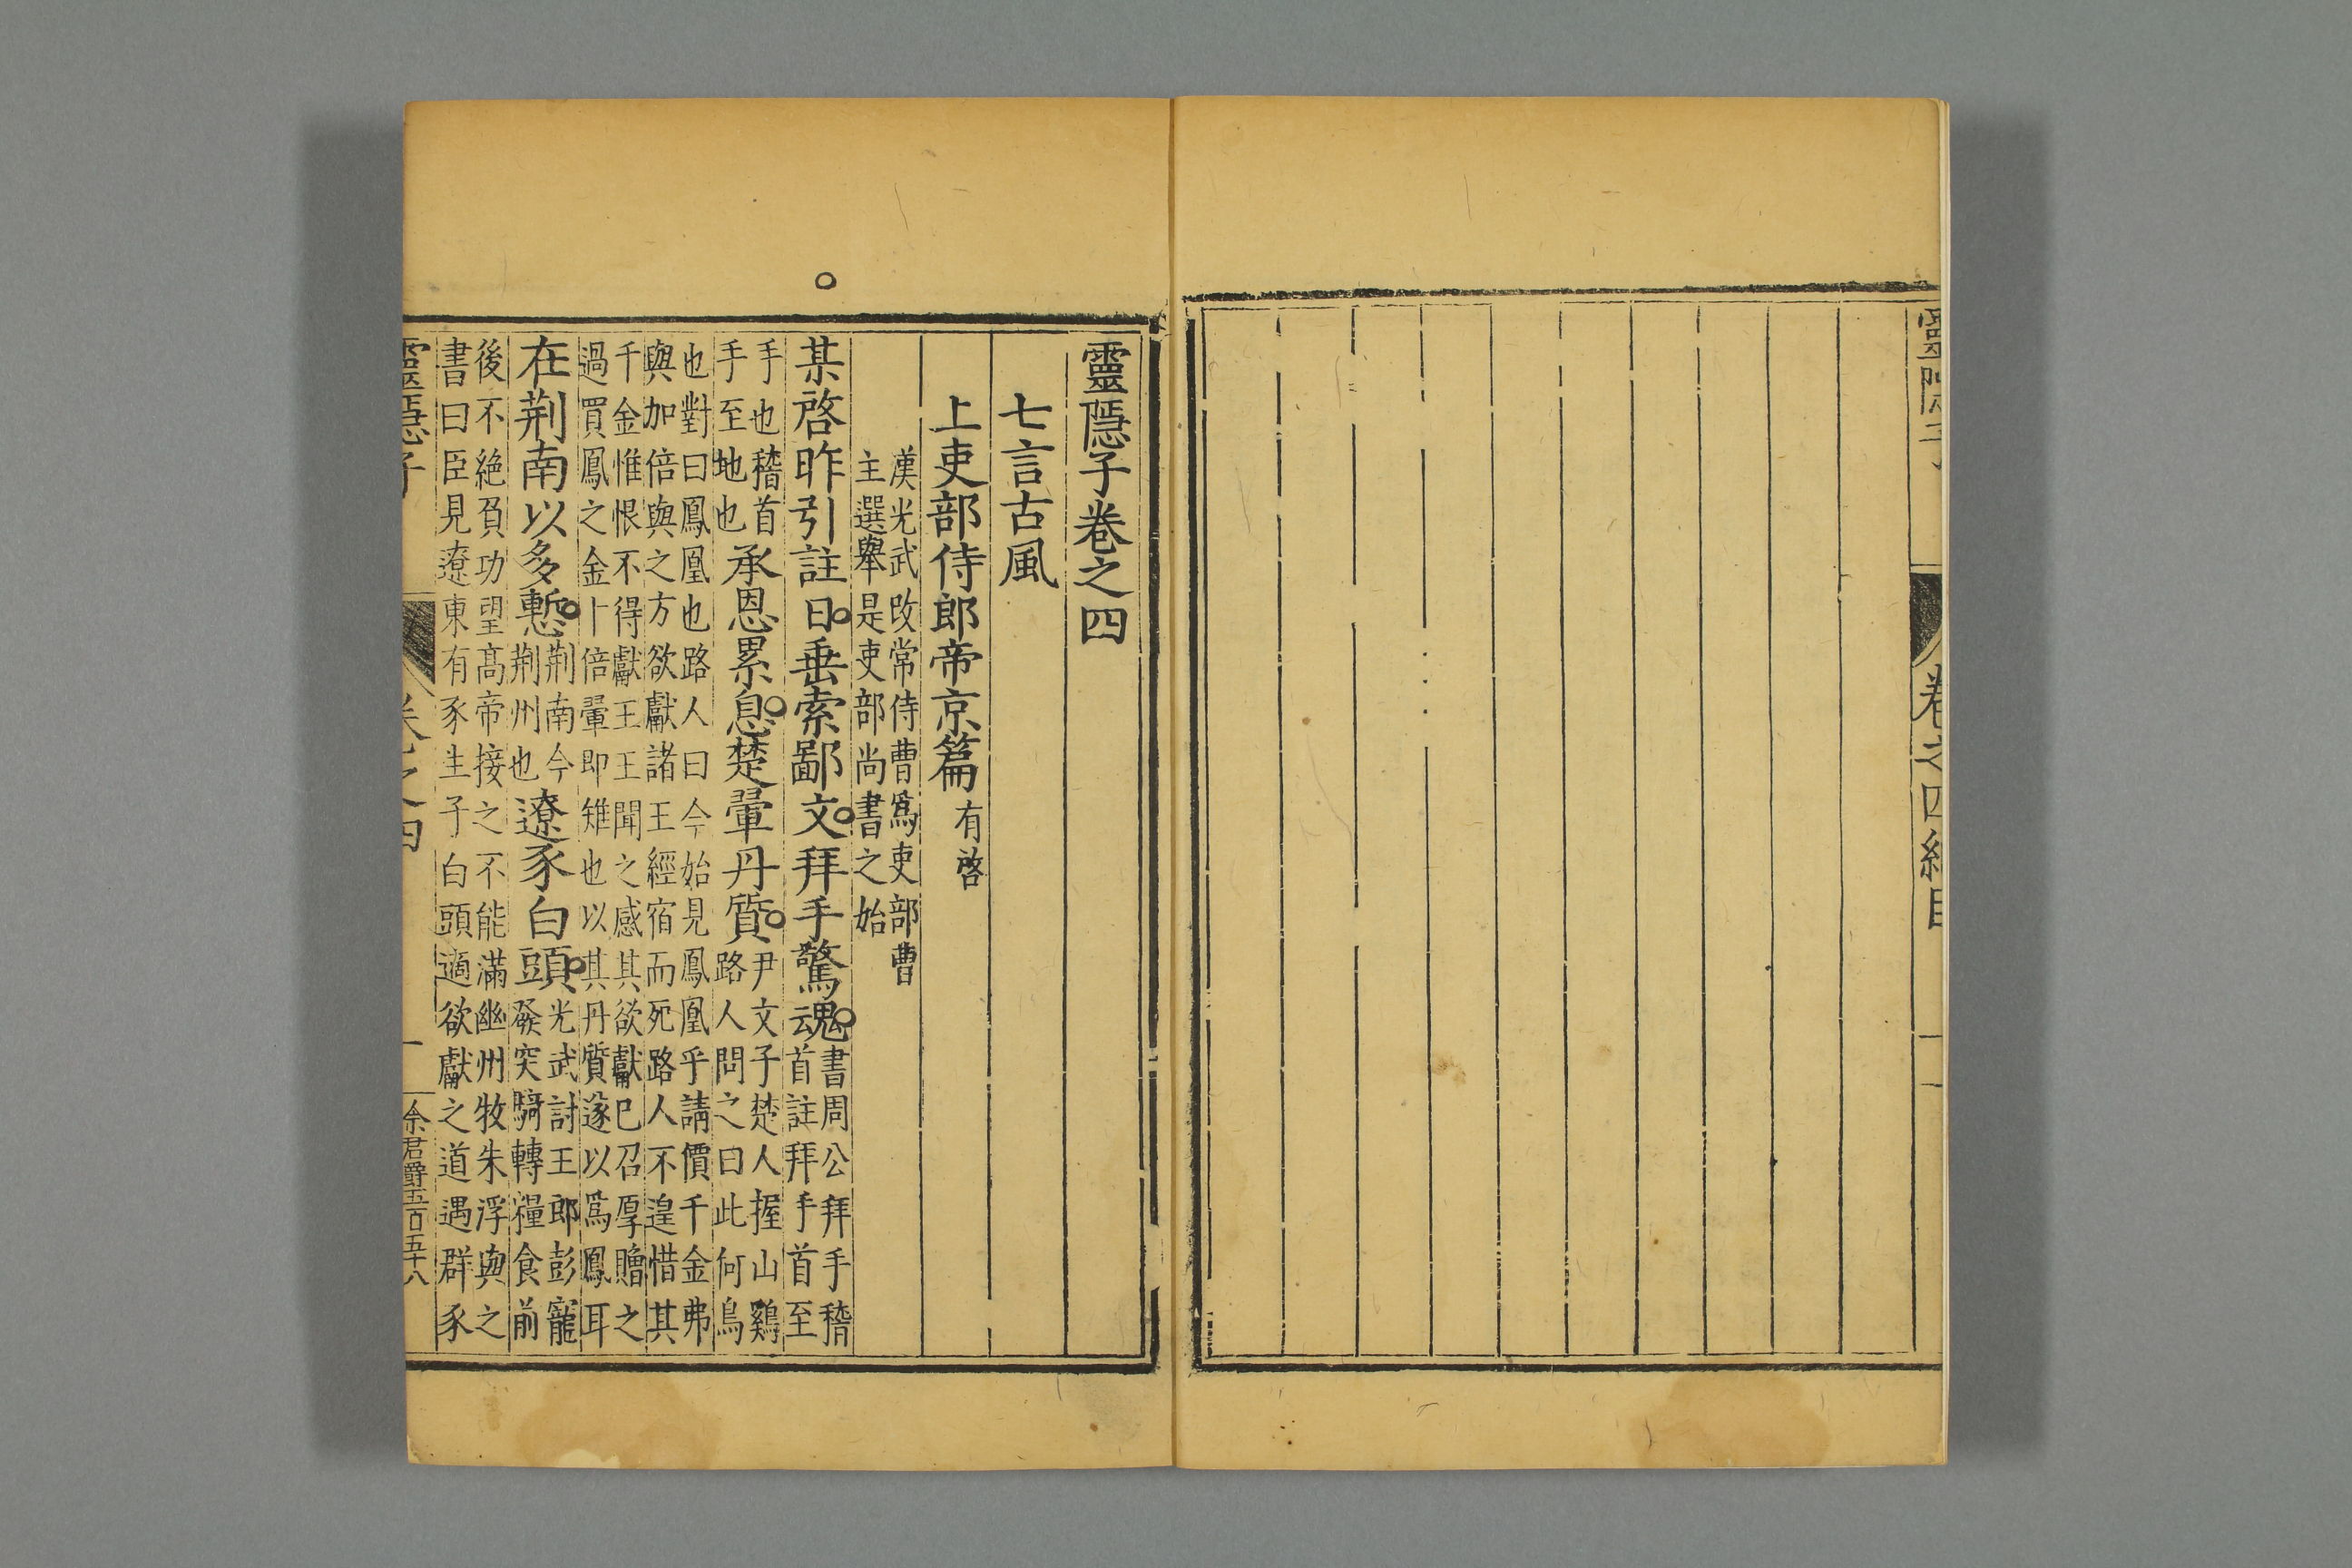 卷之四綱目
靈隱子卷之四
七言古風
上吏部侍郎帝京篇有啓
漢光武改常侍曹爲吏部曹
主選舉是吏部尚書之始
某啓昨引註曰垂索鄙文拜手驚魂書周公拜手稽
首註拜手首至
手也稽首
手至地也承恩累息楚翬丹質尹文子楚人握山鷄
路人問之曰此何鳥
也對曰鳳凰也路人曰今始見鳳凰乎請價千金弗
與加倍與之方欲獻諸王經宿而死路人不遑惜其
千金惟恨不得獻王王聞之感其欲獻已召厚贈之
過買鳳之金十倍翬即雉也以其丹質遂以爲鳳耳
在荆南以多慙荆南今
荆州也遼豕白頭光武討王郎彭寵
發突騎轉糧食前
後不絕負功望高帝接之不能滿幽州牧朱浮與之
書曰臣見遼東有豕生子白頭適欲獻之道遇群豕
靈隱子
卷之四
一
余君爵五百五十八